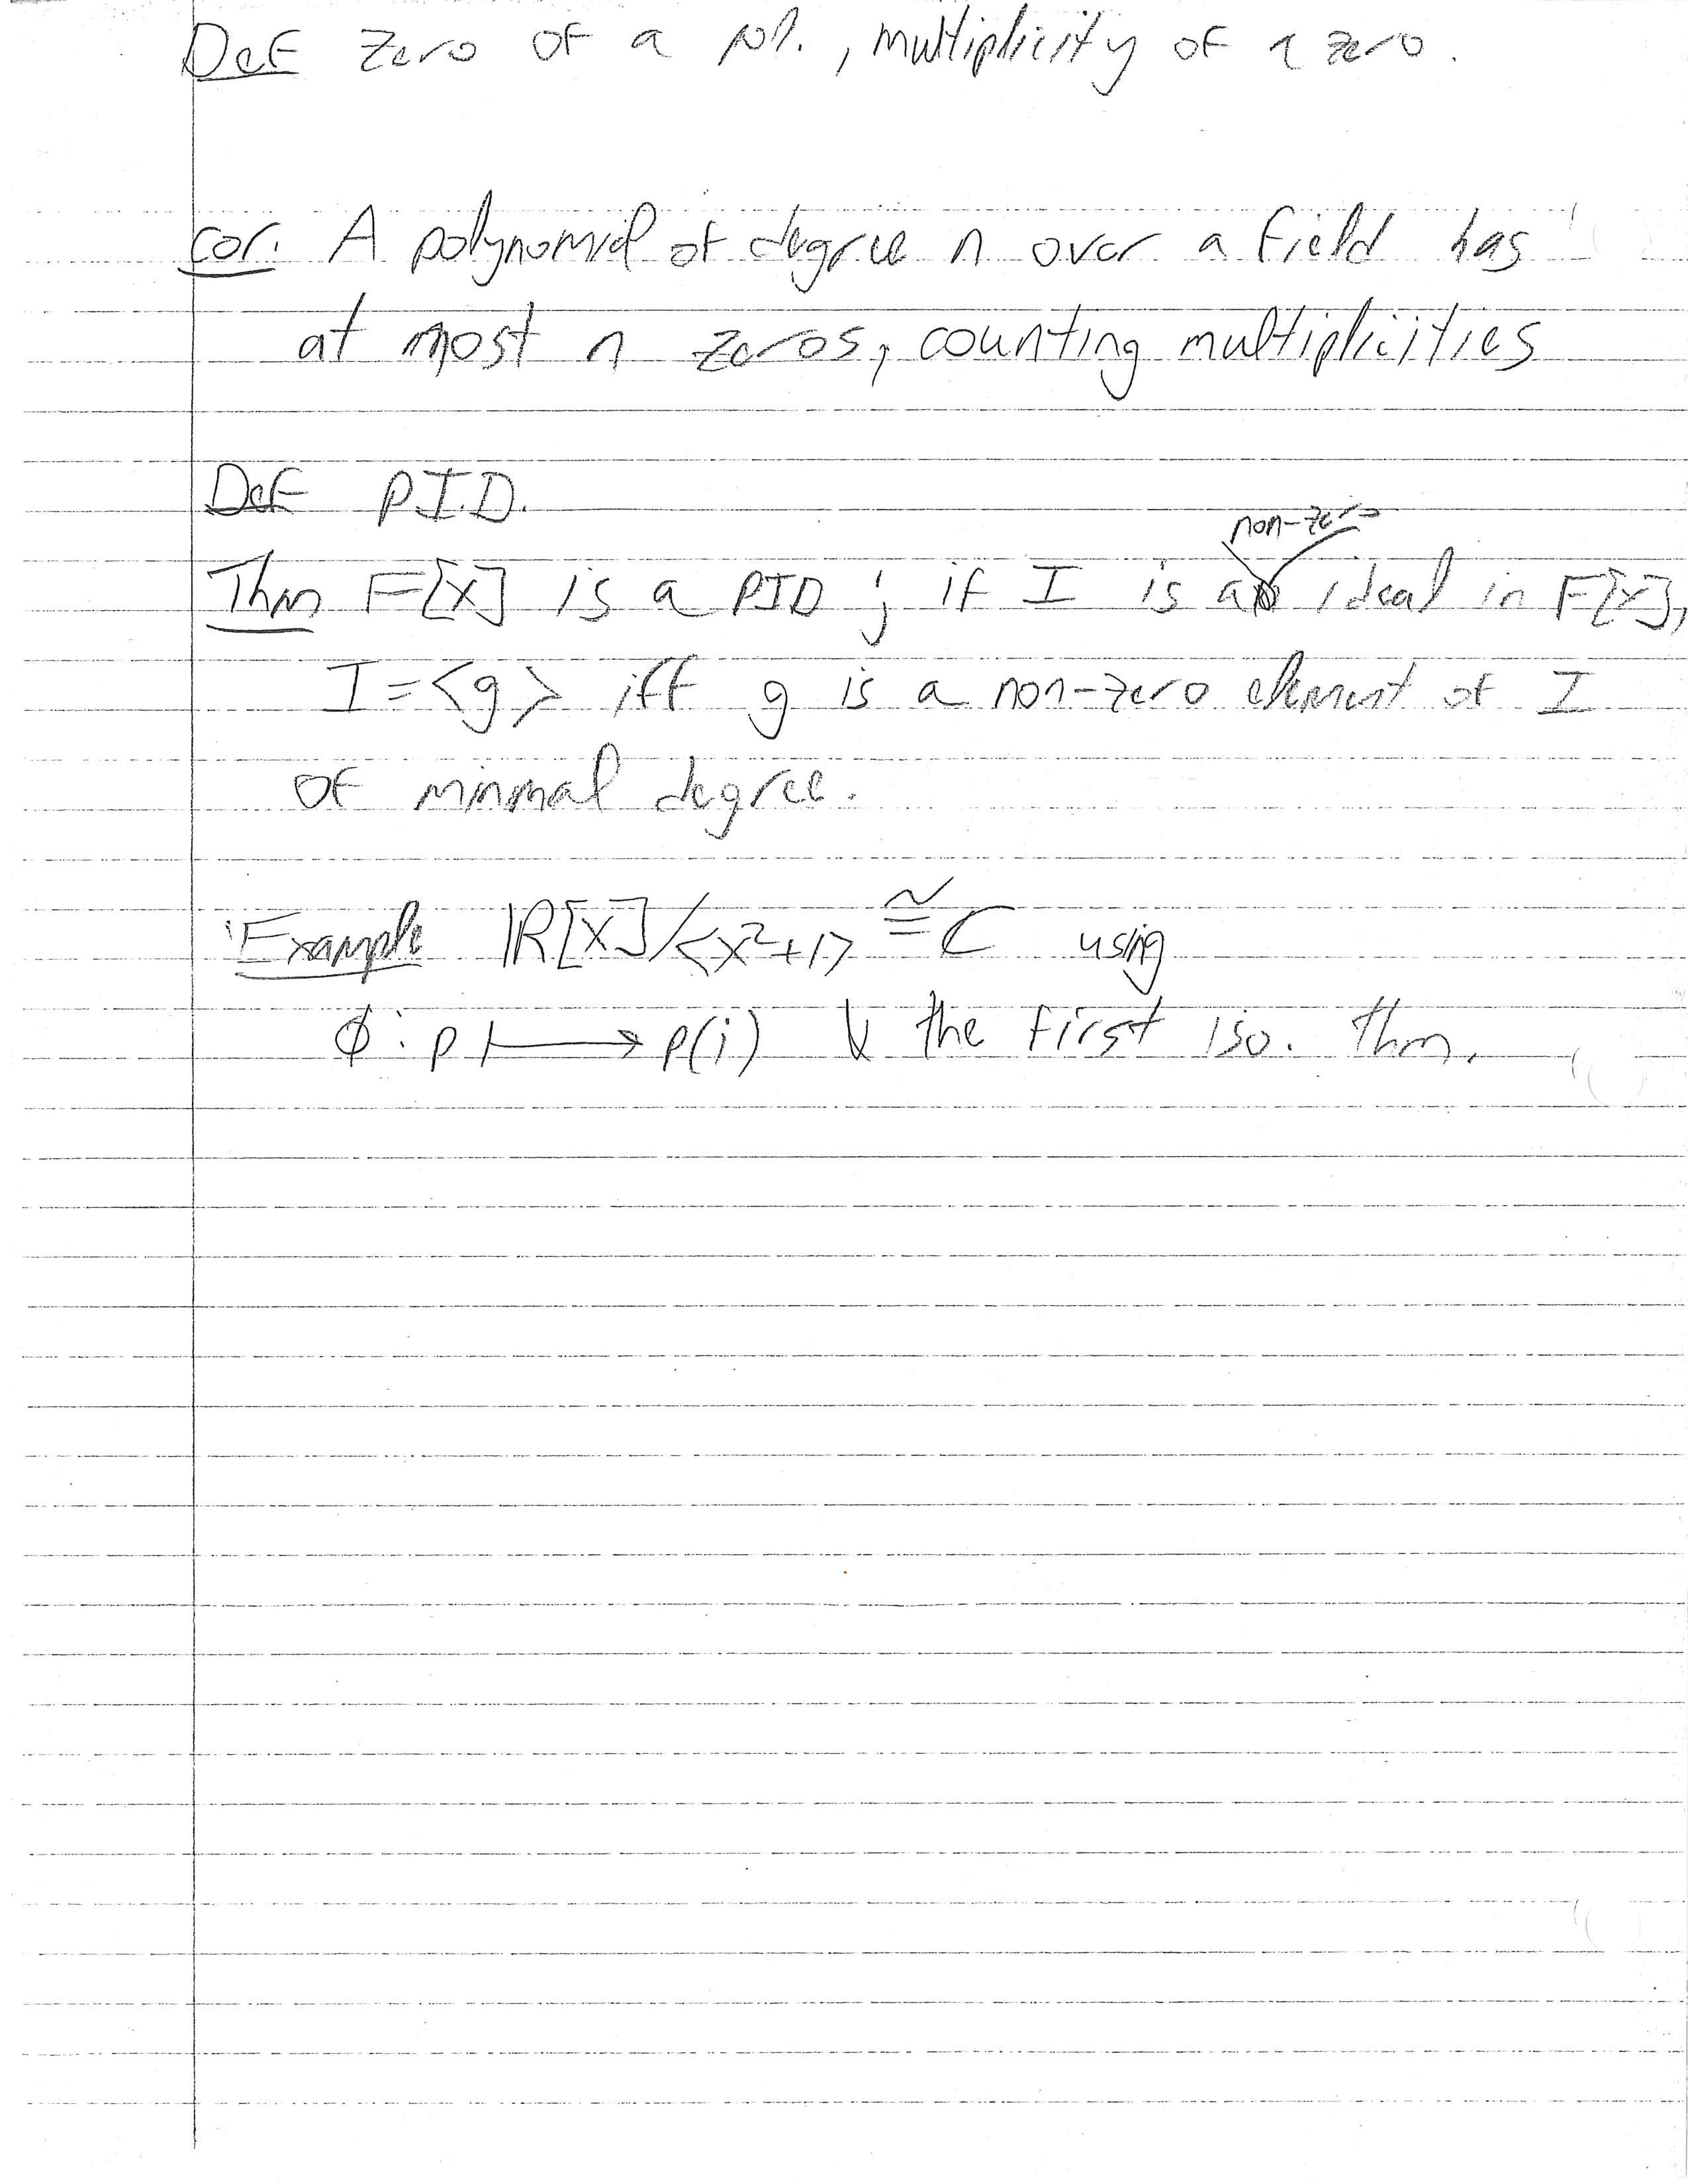 Def Zero of a pol., multiplicity of a zero.
Cor. A polynomial of degree n over a field has
at most n zeros, counting multiplicities
Def P.I.D.
non-zero
Thm F[x] is a PID ; if I is a ideal in F[x],
I = <g> iff g is a non-zero element of I
of minimal degree.
Example ℝ[x]/<x²+1> ≅ C using
φ: p ↦ p(i) & the first iso. thm.